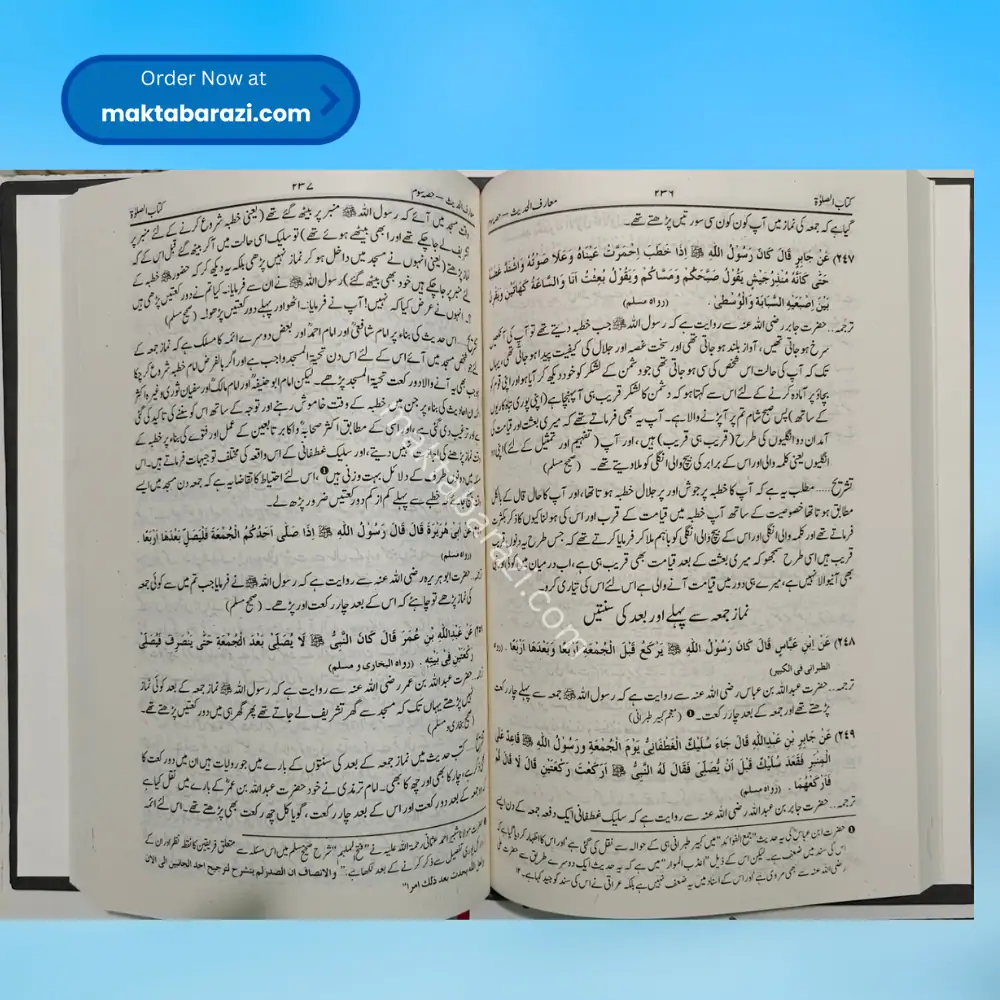 Order Now at
maktabarazi.com
کتاب الصلوٰۃ
معارف الحدیث – حصہ سوم
۲۳۶
گیا ہے کہ جمعہ کی نماز میں آپ کون کون سی سورتیں پڑھتے تھے۔
۲۴۷) عَنْ جَابِرٍ قَالَ كَانَ رَسُوْلُ اللهِ ﷺ اِذَا خَطَبَ اِحْمَرَّتْ عَيْنَاهُ وَعَلَا صَوْتُهُ وَاشْتَدَّ غَضَبُهُ
حَتّٰى كَاَنَّهُ مُنْذِرُ جَيْشٍ يَقُوْلُ صَبَّحَكُمْ وَمَسَّاكُمْ وَيَقُوْلُ بُعِثْتُ اَنَا وَالسَّاعَةُ كَهَاتَيْنِ وَيَقْرُنُ
بَيْنَ اِصْبَعَيْهِ السَّبَابَةِ وَالْوُسْطٰى . (رواه مسلم)
ترجمہ.. حضرت جابر رضی اللہ عنہ سے روایت ہے کہ رسول اللہ ﷺ جب خطبہ دیتے تھے تو آپ کی آنکھیں
سرخ ہو جاتی تھیں، آواز بلند ہو جاتی تھی اور سخت غصہ اور جلال کی کیفیت پیدا ہو جاتی تھی، یہاں
تک کہ آپ کی حالت اس شخص کی سی ہو جاتی تھی جو دشمن کے لشکر کو خود دیکھ کر آیا ہو اور اپنی قوم کو
بچاؤ پر آمادہ کرنے کے لئے اس سے کہتا ہو کہ دشمن کا لشکر قریب ہی آ پہنچا ہے (اپنی پوری تباہ کاریوں
کے ساتھ) بس صبح شام تم پر آ پڑنے والا ہے۔ آپ یہ بھی فرماتے تھے کہ میری بعثت اور قیامت کی
آمد ان دو انگلیوں کی طرح (قریب ہی قریب) ہیں، اور آپ (تفہیم اور تمثیل کے لئے) اپنی
انگلیوں یعنی کلمہ والی اور اس کے برابر کی بیچ والی انگلی کو ملا دیتے تھے۔ (صحیح مسلم)
تشریح..... مطلب یہ ہے کہ آپ کا خطبہ پر جوش اور پر جلال خطبہ ہوتا تھا، اور آپ کا حال قال کے بالکل
مطابق ہوتا تھا خصوصیت کے ساتھ آپ خطبہ میں قیامت کے قرب اور اس کی ہولناکیوں کا ذکر بکثرت
فرماتے تھے اور کلمہ والی انگلی اور اس کے بیچ والی انگلی کو باہم ملا کر فرمایا کرتے تھے کہ جس طرح یہ دونوں قریب
قریب ہیں اسی طرح سمجھو کہ میری بعثت کے بعد قیامت بھی قریب ہی ہے، اب درمیان میں کوئی اور
بھی آنیوالا نہیں ہے، میرے ہی دور میں قیامت آنے والی ہے اس لئے اس کی تیاری کرو۔
نماز جمعہ سے پہلے اور بعد کی سنتیں
۲۴۸) عَنْ اِبْنِ عَبَّاسٍ قَالَ كَانَ رَسُوْلُ اللهِ ﷺ يَرْكَعُ قَبْلَ الْجُمُعَةِ اَرْبَعًا وَبَعْدَهَا اَرْبَعًا . (رواه
الطبرانی فی الکبیر)
ترجمہ.. حضرت عبداللہ بن عباس رضی اللہ عنہ سے روایت ہے کہ رسول اللہ ﷺ جمعہ سے پہلے چار رکعت
پڑھتے تھے اور جمعہ کے بعد چار رکعت۔ ❶ (معجم کبیر طبرانی)
۲۴۹) عَنْ جَابِرِ بْنِ عَبْدِاللهِ قَالَ جَاءَ سُلَيْكُ الْغَطَفَانِىُّ يَوْمَ الْجُمُعَةِ وَرَسُوْلُ اللهِ ﷺ قَاعِدٌ عَلَى
الْمِنْبَرِ فَقَعَدَ سُلَيْكٌ قَبْلَ اَنْ يُصَلِّىَ فَقَالَ لَهُ النَّبِىُّ ﷺ اَرَكَعْتَ رَكْعَتَيْنِ قَالَ لَا قَالَ قُمْ
فَارْكَعْهُمَا . (رواه مسلم)
ترجمہ.. حضرت جابر بن عبداللہ رضی اللہ عنہ سے روایت ہے کہ سلیک غطفانی ایک دفعہ جمعہ کے دن ایسے
❶ حضرت ابن عباسؓ کی یہ حدیث "جمع الفوائد" میں کبیر طبرانی ہی کے حوالہ سے نقل کی گئی ہے اور اس کا اظہار کر دیا گیا ہے کہ
اس کی سند میں ضعف ہے۔ لیکن اس کے ذیل "اعذب الموارد" میں ہے کہ یہ حدیث ایک دوسرے طریق سے حضرت علی
رضی اللہ عنہ سے بھی مروی ہے اور اس کے اسناد میں یہ ضعف نہیں ہے بلکہ عراقی نے اس کی سند کو جید کہا ہے۔ ۱۲
معارف الحدیث – حصہ سوم
۲۳۷
کتاب الصلوٰۃ
وقت مسجد میں آئے کہ رسول اللہ ﷺ منبر پر بیٹھ گئے تھے (یعنی خطبہ شروع کرنے کے لئے منبر پر
تشریف لے جا چکے تھے اور ابھی بیٹھے ہوئے تھے) تو سلیک اسی حالت میں آ کر بیٹھ گئے قبل اس کے کہ
نماز پڑھتے (یعنی انہوں نے مسجد میں داخل ہو کر نماز نہیں پڑھی بلکہ یہ دیکھ کر کہ حضور ﷺ خطبہ کے
لئے منبر پر جا چکے ہیں خود بھی بیٹھ گئے) رسول اللہ ﷺ نے ان سے فرمایا۔ کیا تم نے دو رکعتیں پڑھی ہیں
انہوں نے عرض کیا کہ نہیں! آپ نے فرمایا:۔ اٹھو اور پہلے دو رکعتیں پڑھو!۔ (صحیح مسلم)
اس حدیث کی بناء پر امام شافعیؒ اور امام احمدؒ اور بعض دوسرے ائمہ کا مسلک ہے کہ نماز جمعہ کے
شخص مسجد میں آئے اس کے لئے اس دن تحیۃ المسجد واجب ہے اور اگر بالفرض امام خطبہ شروع کر چکا
بھی یہ آنے والا دو رکعت تحیۃ المسجد پڑھے۔ لیکن امام ابو حنیفہؒ اور امام مالکؒ اور سفیان ثوری وغیرہ اکثر
ان احادیث کی بناء پر جن میں خطبہ کے وقت خاموش رہنے اور توجہ کے ساتھ اس کو سننے کی تاکید کی گئی
ہے اور ترغیب دی گئی ہے، اور اسی کے مطابق اکثر صحابہؓ و اکابر تابعین کے عمل اور فتوے کی بناء پر خطبہ کے
نماز پڑھنے کی اجازت نہیں دیتے، اور سلیک غطفانی کے اس واقعہ کی مختلف توجیہات فرماتے ہیں۔ اس
میں دونوں طرف کے دلائل بہت وزنی ہیں ❶، اس لئے احتیاط کا تقاضا یہ ہے کہ جمعہ دن مسجد میں ایسے
کہ خطبے سے پہلے کم از کم دو رکعتیں ضرور پڑھ لے۔
عَنْ اَبِىْ هُرَيْرَةَ قَالَ قَالَ رَسُوْلُ اللهِ ﷺ اِذَا صَلّٰى اَحَدُكُمُ الْجُمُعَةَ فَلْيُصَلِّ بَعْدَهَا اَرْبَعًا .
(رواه مسلم)
حضرت ابو ہریرہ رضی اللہ عنہ سے روایت ہے کہ رسول اللہ ﷺ نے فرمایا جب تم میں سے کوئی جمعہ
کی نماز پڑھے تو چاہئے کہ اس کے بعد چار رکعت اور پڑھے۔ (صحیح مسلم)
عَنْ عَبْدِاللهِ بْنِ عُمَرَ قَالَ كَانَ النَّبِىُّ ﷺ لَا يُصَلِّىْ بَعْدَ الْجُمُعَةِ حَتّٰى يَنْصَرِفَ فَيُصَلِّىَ
رَكْعَتَيْنِ فِىْ بَيْتِهِ . (رواه البخارى و مسلم)
حضرت عبداللہ بن عمر رضی اللہ عنہ سے روایت ہے کہ رسول اللہ ﷺ نماز جمعہ کے بعد کوئی نماز
نہیں پڑھتے یہاں تک کہ مسجد سے گھر تشریف لے جاتے تھے پھر گھر ہی میں دو رکعتیں پڑھتے تھے۔
(صحیح بخاری و مسلم)
کتب حدیث میں نماز جمعہ کے بعد کی سنتوں کے بارے میں جو روایات ہیں ان میں دو رکعت کا
ذکر ہے، چار کا بھی اور چھ کا بھی۔ امام ترمذی نے خود حضرت عبداللہ بن عمرؓ کے بارے میں نقل کیا ہے
جمعہ کے بعد دو رکعت اور اس کے بعد چار رکعت، گویا کل چھ رکعت بھی پڑھتے تھے۔ اس لئے ائمہ
حضرت مولانا شبیر احمد عثمانی رحمۃ اللہ علیہ نے "فتح الملہم" شرح صحیح مسلم میں اس مسئلہ سے متعلق فریقین کا نقطۂ نظر اور ان کے
تفصیل سے ذکر کرنے کے بعد لکھا ہے:۔ "والانصاف ان الصدر لم ينشرح لترجيح احد الجانبين الى الآن
الله يحدث بعد ذلك امرا"
maktabarazi.com